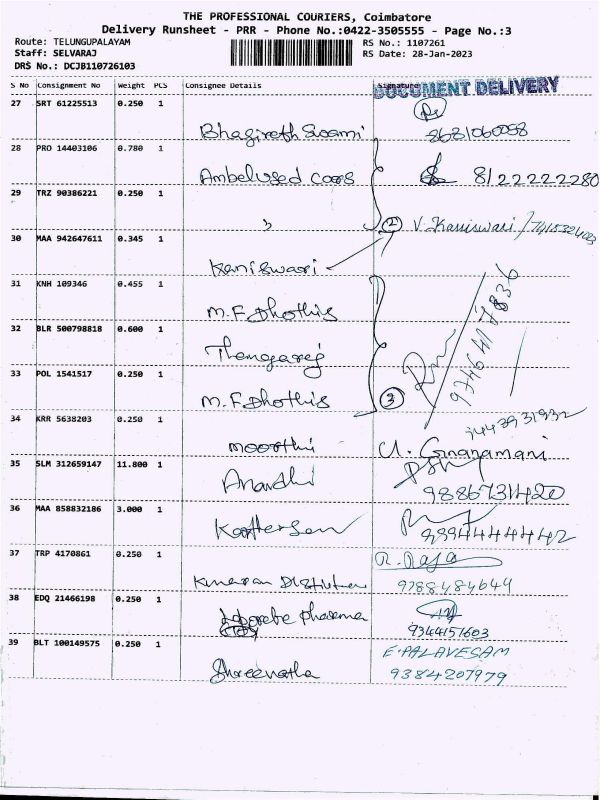 THE PROFESSIONAL COURIERS, Coimbatore
Delivery Runsheet - PRR - Phone No.:0422-3505555 - Page No.:3
Route: TELUNGUPALAYAM
Staff: SELVARAJ
DRS No.: DCJB110726103
RS No.: 1107261
RS Date: 28-Jan-2023
S No Consignment No Weight PCS Consignee Details Signature
DOCUMENT DELIVERY
27 SRT 61225513 0.250 1
Bhagireth Swami 8681060058
28 PRO 14403106 0.780 1
Ambelused cars 8122222280
29 TRZ 90386221 0.250 1
" 2 V. Kaniswari /
30 MAA 942647611 0.345 1
Kaniswari
31 KNH 109346 0.455 1
M.F. Dhothis
32 BLR 500798818 0.600 1
Thengaraj
33 POL 1541517 0.250 1
M.F. Dhothis 3
34 KRR 5638203 0.250 1
moorthi U. Gnanamani
35 SLM 312659147 11.800 1
Anandhi 9886731420
36 MAA 858832186 3.000 1
9994444442
37 TRP 4170861 0.250 1
R. Raja
9788484644
38 EDQ 21466198 0.250 1
pharma 9344151603
39 BLT 100149575 0.250 1
E. PALAVESAM
Shreenatha 9384207979